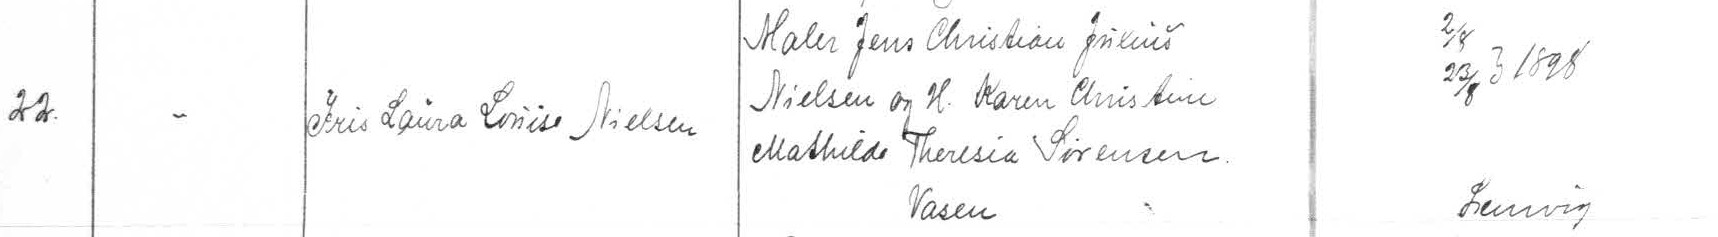 Maler Jens Christian Julius
2/8
22. - Iris Laura Louise Nielsen
Nielsen og H. Karen Christine
23/8 } 1898
Mathilde Theresia Sørensen.
Vasen
Lemvig